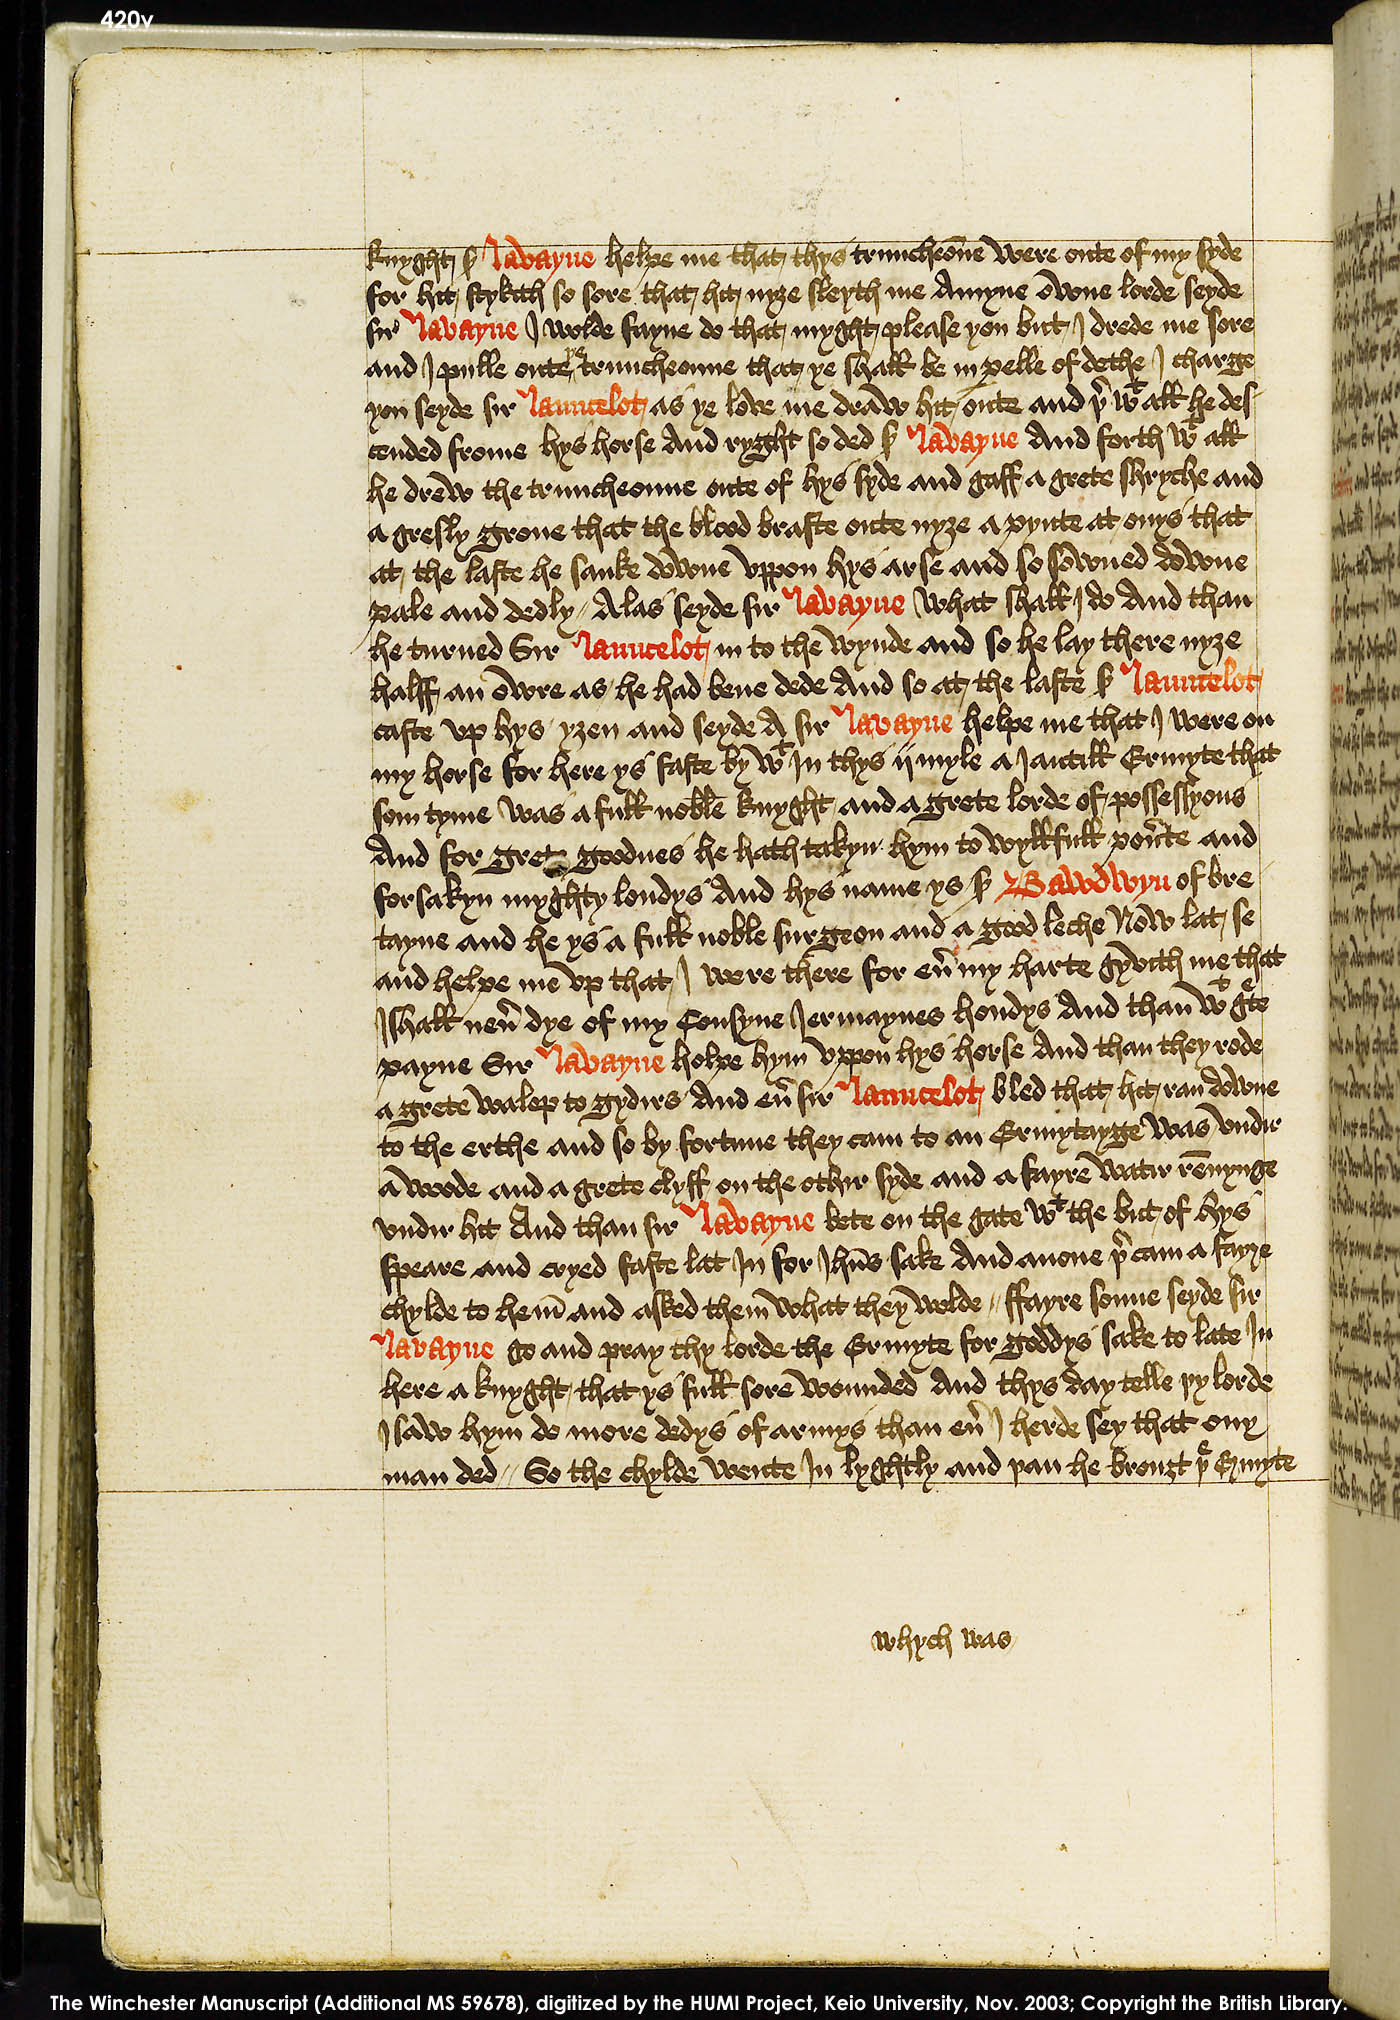 420v
knyght sʳ Lavayne helpe me that thys truncheōne were oute of my syde
for hit stykith so sore that hit nyȝe sleyth me A myne ōwne lorde seyde
sir Lavayne I wolde fayne do that myght please you but I drede me sore
and I pulle oute yᵉ truncheoune that ye shall be in ꝑelle of dethe I charge
you seyde sir Launcelot as ye love me draw hit oute and þʳ wᵗ all he des
cended frome hys horse And ryght so ded sʳ Lavayne And forth wᵗ all
he drew the truncheoune oute of hys syde and gaff a grete shryche and
a gresly grone that the blood braste oute nyȝe a pynte at onys that
at the laste he sanke downe uppon hys arse and so sowned downe
pale and dedly // Alas seyde sir Lavayne what shall I do And than
he turned Sir Launcelot in to the wynde and so he lay there nyȝe
halff an owre as he had bene dede And so at the laste sʳ Launcelot
caste up hys yȝen and seyde A sir Lavayne helpe me that I were on
my horse for here ys faste by wᵗ In thys ij myle a Jantill Ermyte that
som tyme was a full noble knyght and a grete lorde of possessyons
And for grete goodnes he hath takyn hym to wyllfull pov̉te and
forsakyn myghty londys And hys name ys sʳ Bawdwyn of bre
tayne and he ys a full noble surgeon and a good leche Now lat se
and helpe me up that I were there for ev̉ my harte gyvith me that
I shall nev̉ dye of my Cousyne Jermaynes hondys And than wᵗ gᵉte
payne Sir Lavayne holpe hym uppon hys horse And than they rode
a grete walop to gydirs And ev̉ sir Launcelot bled that hit ran downe
to the erthe and so by fortune they cam to an Ermytayge was undir
a woode and a grete clyff on the othir syde and a fayre watir rēnynge
undir hit And than sir Lavayne bete on the gate wᵗ the but of hys
speare and cryed faste lat In for Jhūs sake And anone þʳ cam a fayre
chylde to hem̄ and asked them what they wolde // ffayre sonne seyde sir
Lavayne go and pray thy lorde the Ermyte for goddys sake to late In
here a knyght that ys full sore wounded And thys day telle þy lorde
I saw hym do more dedys of armys than ev̉ I herde sey that ony
man ded // So the chylde wente In lyghtly and þan he brouȝt þᵉ Ermyte
whych was
The Winchester Manuscript (Additional MS 59678), digitized by the HUMI Project, Keio University, Nov. 2003; Copyright the British Library.